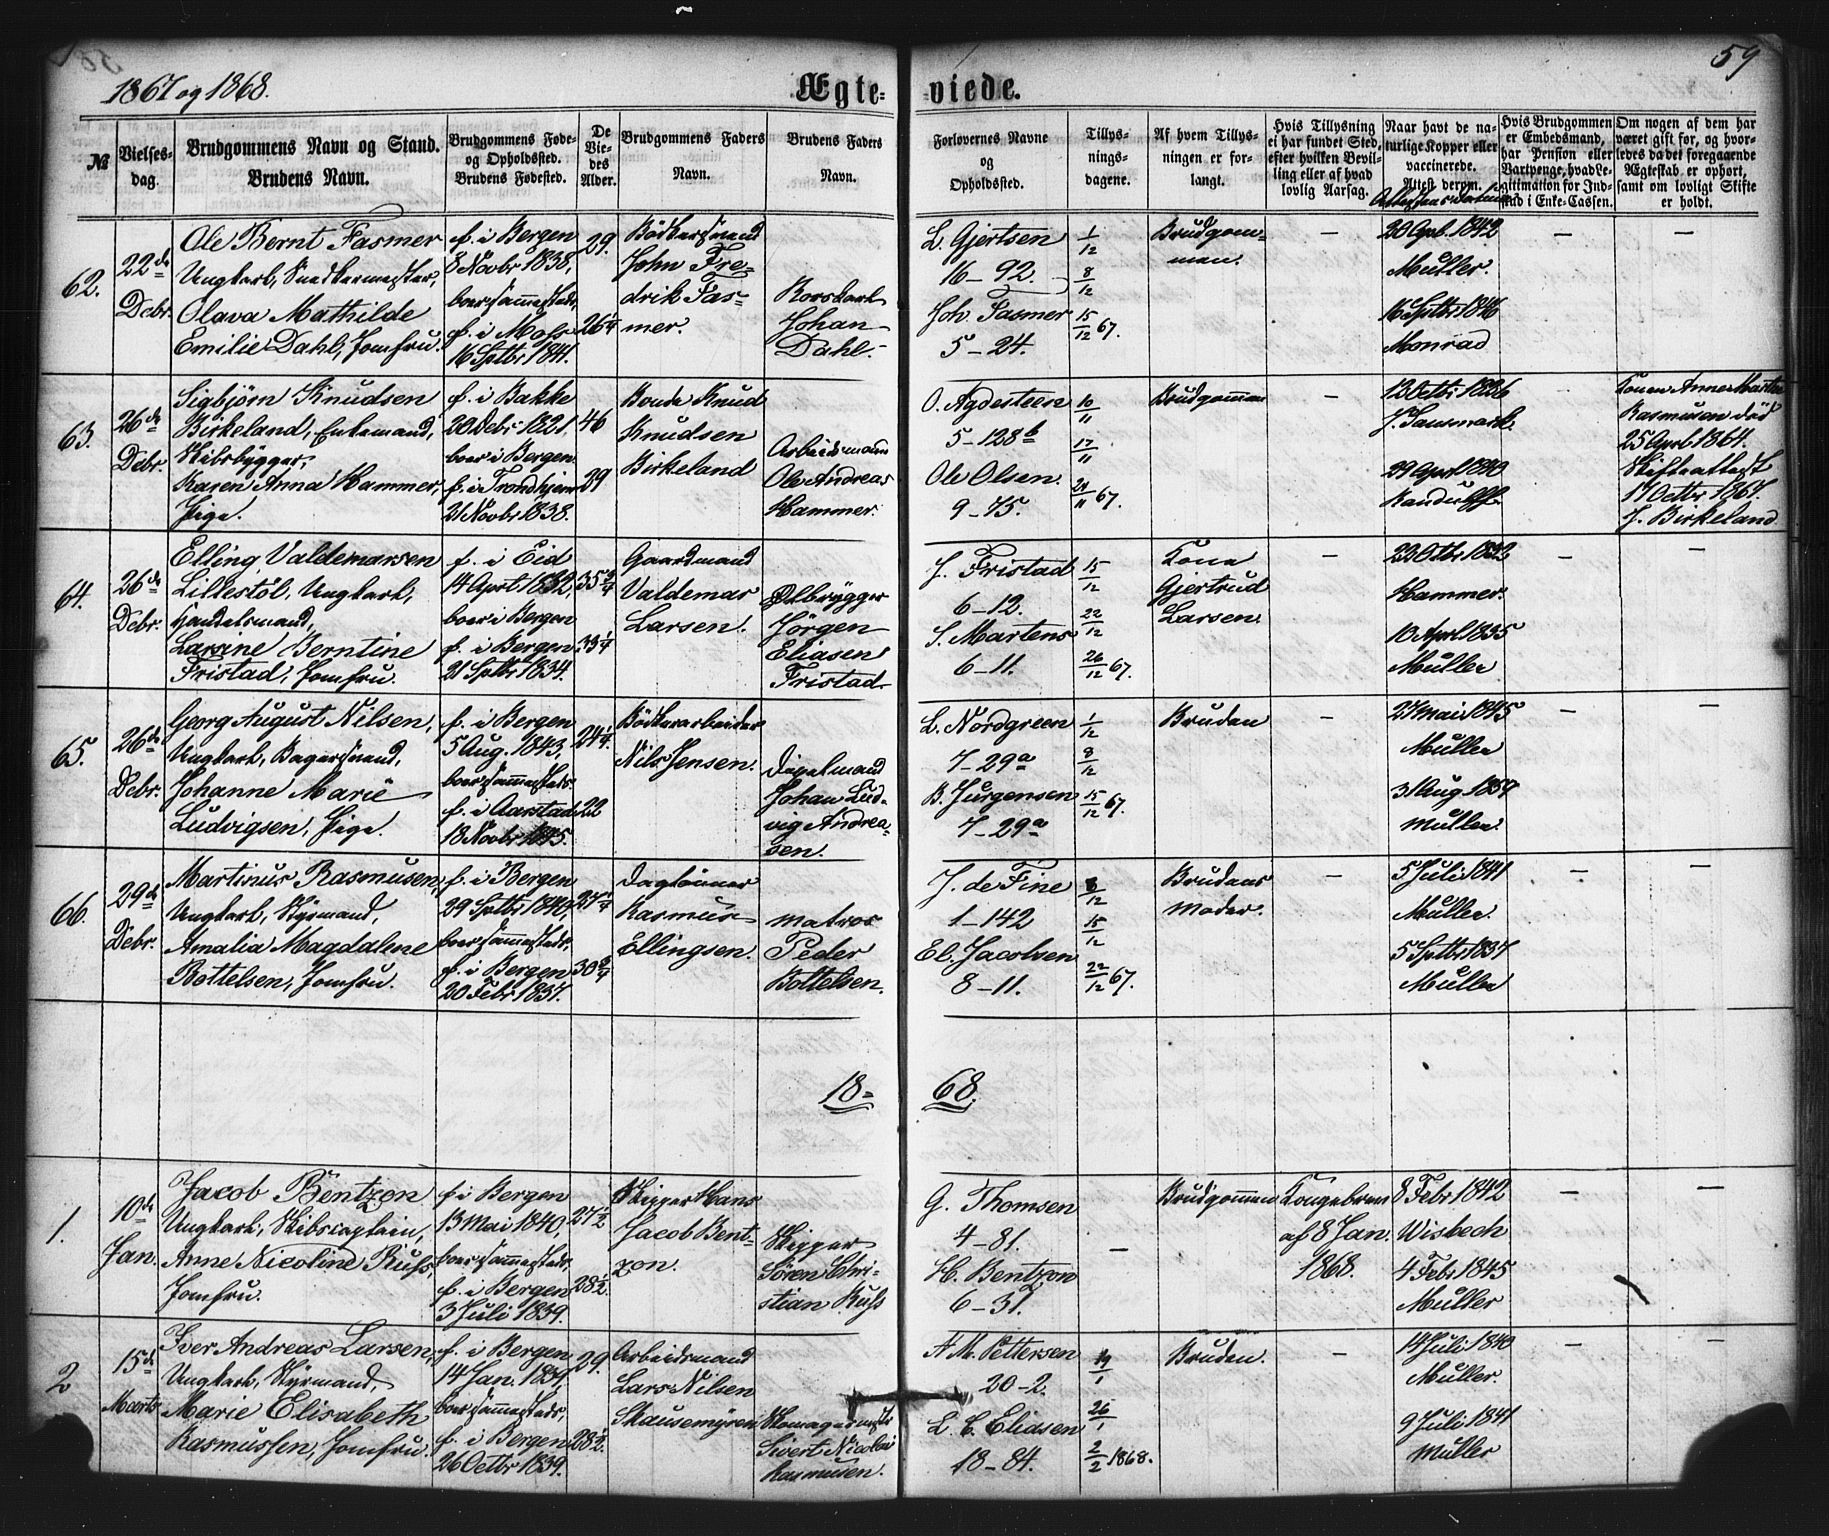 1867 og 1868.
Ægte-
viede.
59
№
Vielses-
dag.
Brudgommens Navn og Stand.
Brudens Navn.
Brudgommens Føde-
og Opholdssted.
Brudens Fødested.
De
Vie-
des
Alder.
Brudgommens Faders
Navn.
Brudens Faders
Navn.
Forlovernes Navne
og
Opholdssted.
Tillys-
nings-
dagene.
Af hvem Tillys-
ningen er for-
langt.
Hvis Tillysning
ei har fundet Sted,
efter hvilken Bevil-
ling eller af hvad
lovlig Aarsag.
Naar havt de na-
turlige Kopper eller
vaccinerede.
Attest derom.
Attestens Datum
Hvis Brudgommen
er Embedsmand,
har Pension eller
Vartpenge, hvad Le-
gitimation for Ind-
skud i Enke-Cassen.
Om nogen af dem har
været gift for, og hvor-
ledes da det foregaaende
Ægteskab er ophørt,
samt om lovligt Skifte
er holdt.
62.
22de
Debr.
Ole Bernt Fasmer
Ungkarl, Snedkermester,
Olava Mathilde
Emilie Dahl, Jomfru.
f. i Bergen
8 Novbr 1838,
boer sammesteds,
f. i Moss
16 Septbr 1841.
29.
26 1/4
Bödkersvend
John Fre-
drik Fas-
mer.
Korskarl
Johan
Dahl.
L. Gjertsen
16-92.
Joh Fasmer
5-24.
1/12
8/12
15/12 67.
Brudgom-
men.
–
20 Apl. 1842
Müller.
16 Septbr 1846
Monrad
–
–
63.
26de
Debr.
Sigbjørn Knudsen
Birkeland, Enkemand,
Skibsbygger,
Karen Anna Hammer,
Pige.
f. i Bakke
20 Debr 1821,
boer i Bergen
f. i Trondhjem
21 Novbr 1838.
46
29
Bonde Knud
Knudsen
Birkeland
Arbeidsmand
Ole Andreas
Hammer.
O. Agdesteen
5-128b
Ole Olsen.
9-75.
10/11
17/11
24/11 67.
Brudgommen
–
13 Octbr 1826
29 April 1840
–
Konen Anne Martha
Rasmusen död
25 April 1864.
Skifteattest
17 Octbr 1867.
J. Birkeland
64.
26de
Debr.
Elling Valdemarsen
Lillestöl, Ungkarl,
Handelsmand,
Larsine Berntine
Fristad, Jomfru.
f. i Eid
14 April 1832,
boer i Bergen
f. i Bergen
21 Septbr 1834.
35 3/4
33 1/4
Gaardmand
Valdemar
Larsen.
Ølbrygger
Jörgen
Eliasen
Fristad
J. Fristad
6-12.
S. Martens
6-11.
15/12
22/12
26/12 67.
Kona
Gjertrud
Larsen.
–
Hammer.
10 April 1835
Müller
–
–
65.
26de
Debr.
Georg August Nilsen,
Ungkarl, Bagersvend,
Johanne Marie
Ludvigsen, Pige.
f. i Bergen
5 Aug. 1843,
boer sammesteds
f. i Aarstad
18 Novbr 1845.
24 1/4
22
Bödkerarbeider
Nils Jensen.
Johan Lud-
vig Andrea-
sen.
L. Nordgreen
7-29a
B. Jürgensen
7-29a
1/12
8/12
15/12 67.
Bruden
–
27 Mai 1845
Müller
3 Aug 1859
Müller.
–
–
66.
29de
Debr.
Martinus Rasmusen,
Ungkarl, Styrmand,
Amalia Magdalene
Bottelsen, Jomfru.
f. i Bergen
29 Septbr 1840,
boer sammesteds,
f. i Bergen
20 Febr 1837.
27 1/4
30 3/4
Daglönner
Rasmus
Ellingsen.
Matros
Peder
Bottelsen.
J. de Fine
1-142
El. Jacobsen
8-11.
8/12
15/12
22/12 67.
Brudens
Moder.
–
5 Juli 1841
Müller.
5 Septbr 1837
Müller
–
–
18-
68.
1.
10de
Jan.
Jacob Bentzon
Ungkarl, Skibscaptain,
Anne Nicoline Russ,
Jomfru.
f. i Bergen
13 Mai 1840,
boer sammesteds,
f. i Bergen
3 Juli 1839.
27 1/2
28 1/2
Skipper Hans
Jacob Bent-
zon.
Skipper
Sören Chri-
stian Russ
G. Thomsen
4-81.
H. Bentzon
6-31.
–
Brudgommen
Kongebrev
af 8 Jan.
1868.
8 Febr 1842
Wisbech
4 Febr 1845
Müller
–
–
2
15de
Marts
Iver Andreas Larsen,
Ungkarl, Styrmand,
Marie Elisabeth
Rasmussen, Jomfru.
f. i Bergen
14 Jan. 1839,
boer sammesteds,
f. i Bergen
26 Octbr 1839.
29.
28 1/2
Arbeidsmand
Lars Nilsen
Skausemyren
Skomagermester
Sivert Nicolai
Rasmusen.
A M. Pettersen
20-2.
L. C. Eliasen
18-84.
19/1
26/1
2/2 1868.
Bruden.
–
14 Juli 1840
Müller.
9 Juli 1841
Müller
–
–